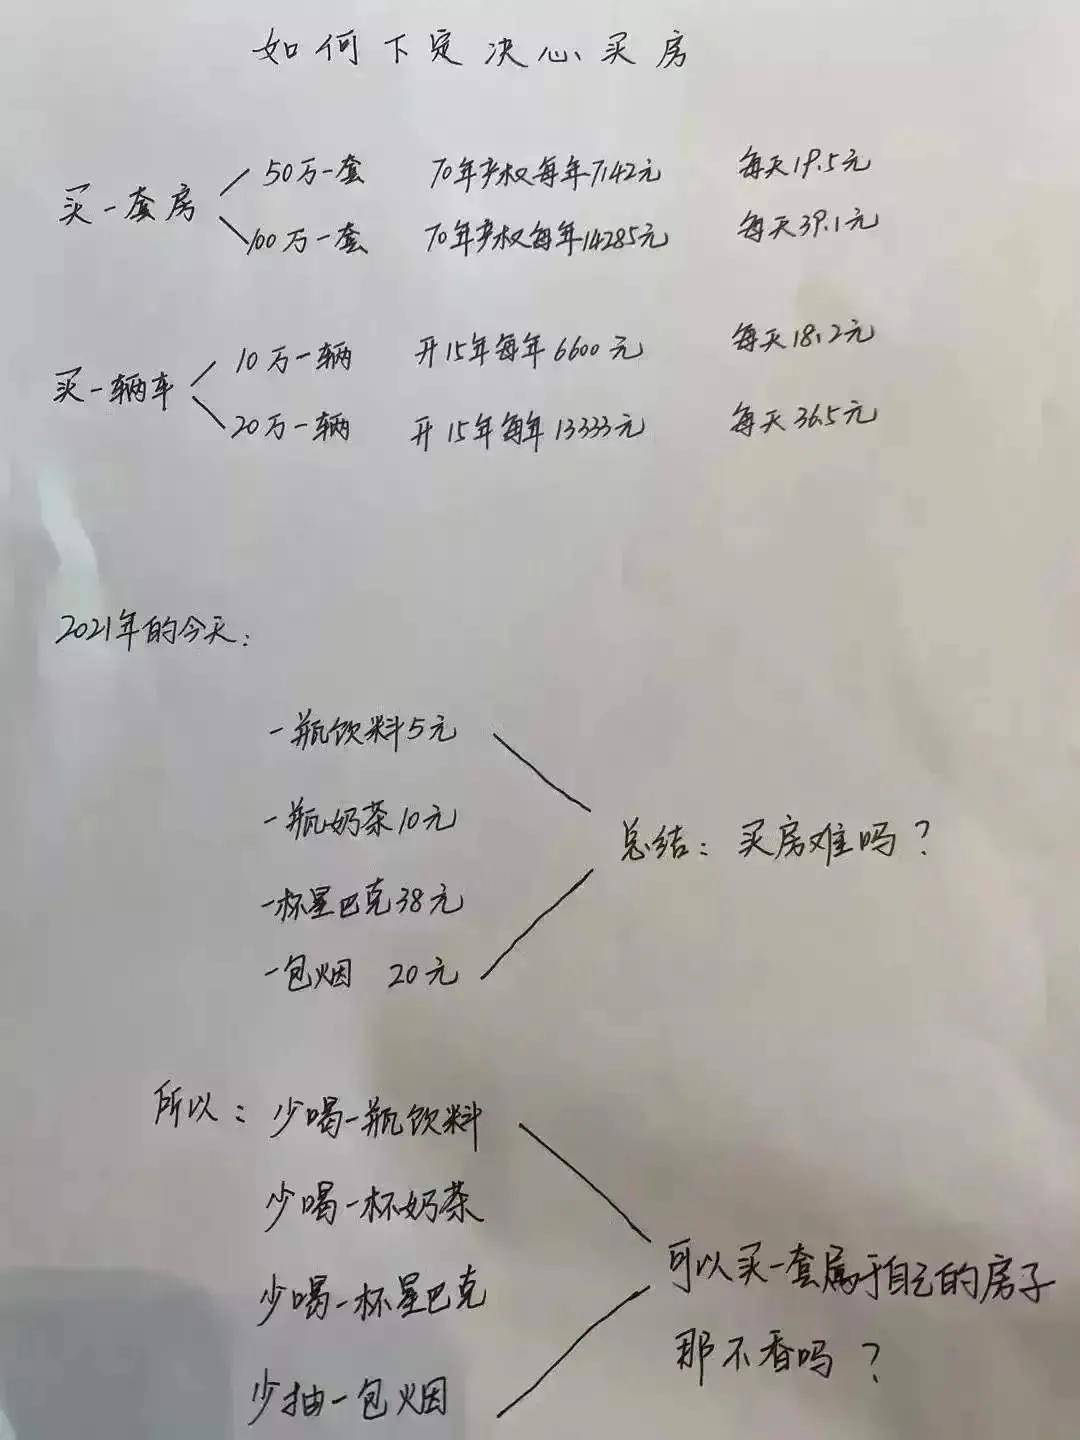 如何下定决心买房
买一套房
50万一套 70年产权每年7142元 每天19.5元
100万一套 70年产权每年14285元 每天39.1元
买一辆车
10万一辆 开15年每年6600元 每天18.2元
20万一辆 开15年每年13333元 每天36.5元
2021年的今天:
一瓶饮料5元
一瓶奶茶10元
一杯星巴克38元
一包烟 20元
总结: 买房难吗?
所以: 少喝一瓶饮料
少喝一杯奶茶
少喝一杯星巴克
少抽一包烟
可以买一套属于自己的房子
那不香吗?